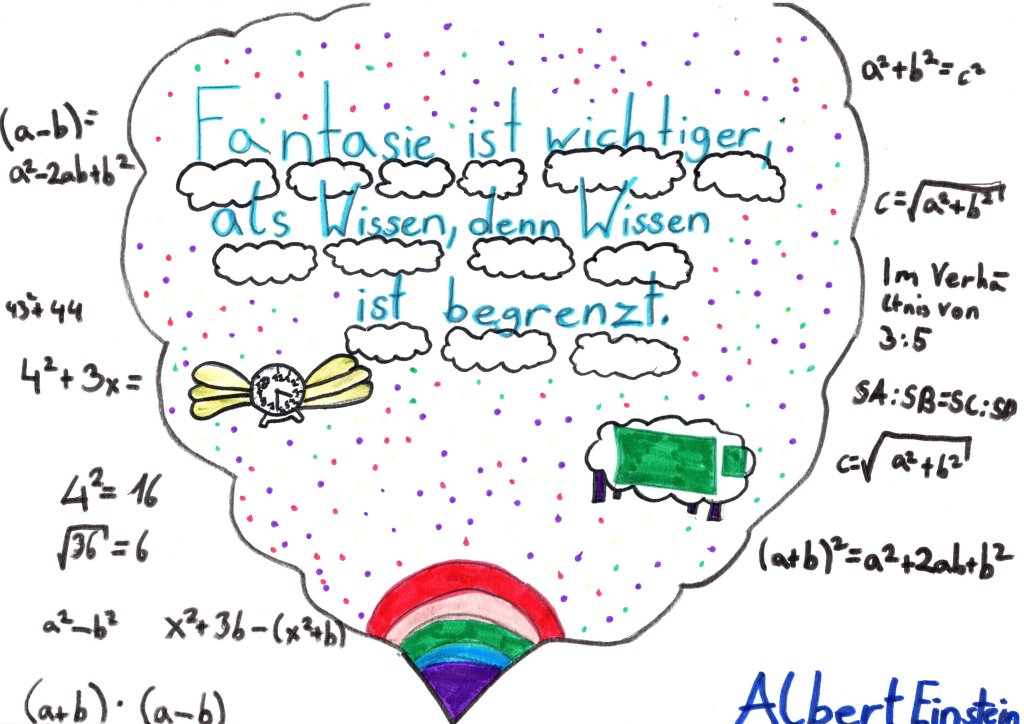 Fantasie ist wichtiger,
als Wissen, denn Wissen
ist begrenzt.
(a-b)=
a²-2ab+b²
43²+44
4²+3x=
4²=16
√36=6
a²-b²
x²+3b-(x²+b)
(a+b)·(a-b)
a²+b²=c²
c=√a²+b²
Im Verhä
ltnis von
3:5
SA:SB=SC:SD
c=√a²+b²
(a+b)²=a²+2ab+b²
Albert Einstein